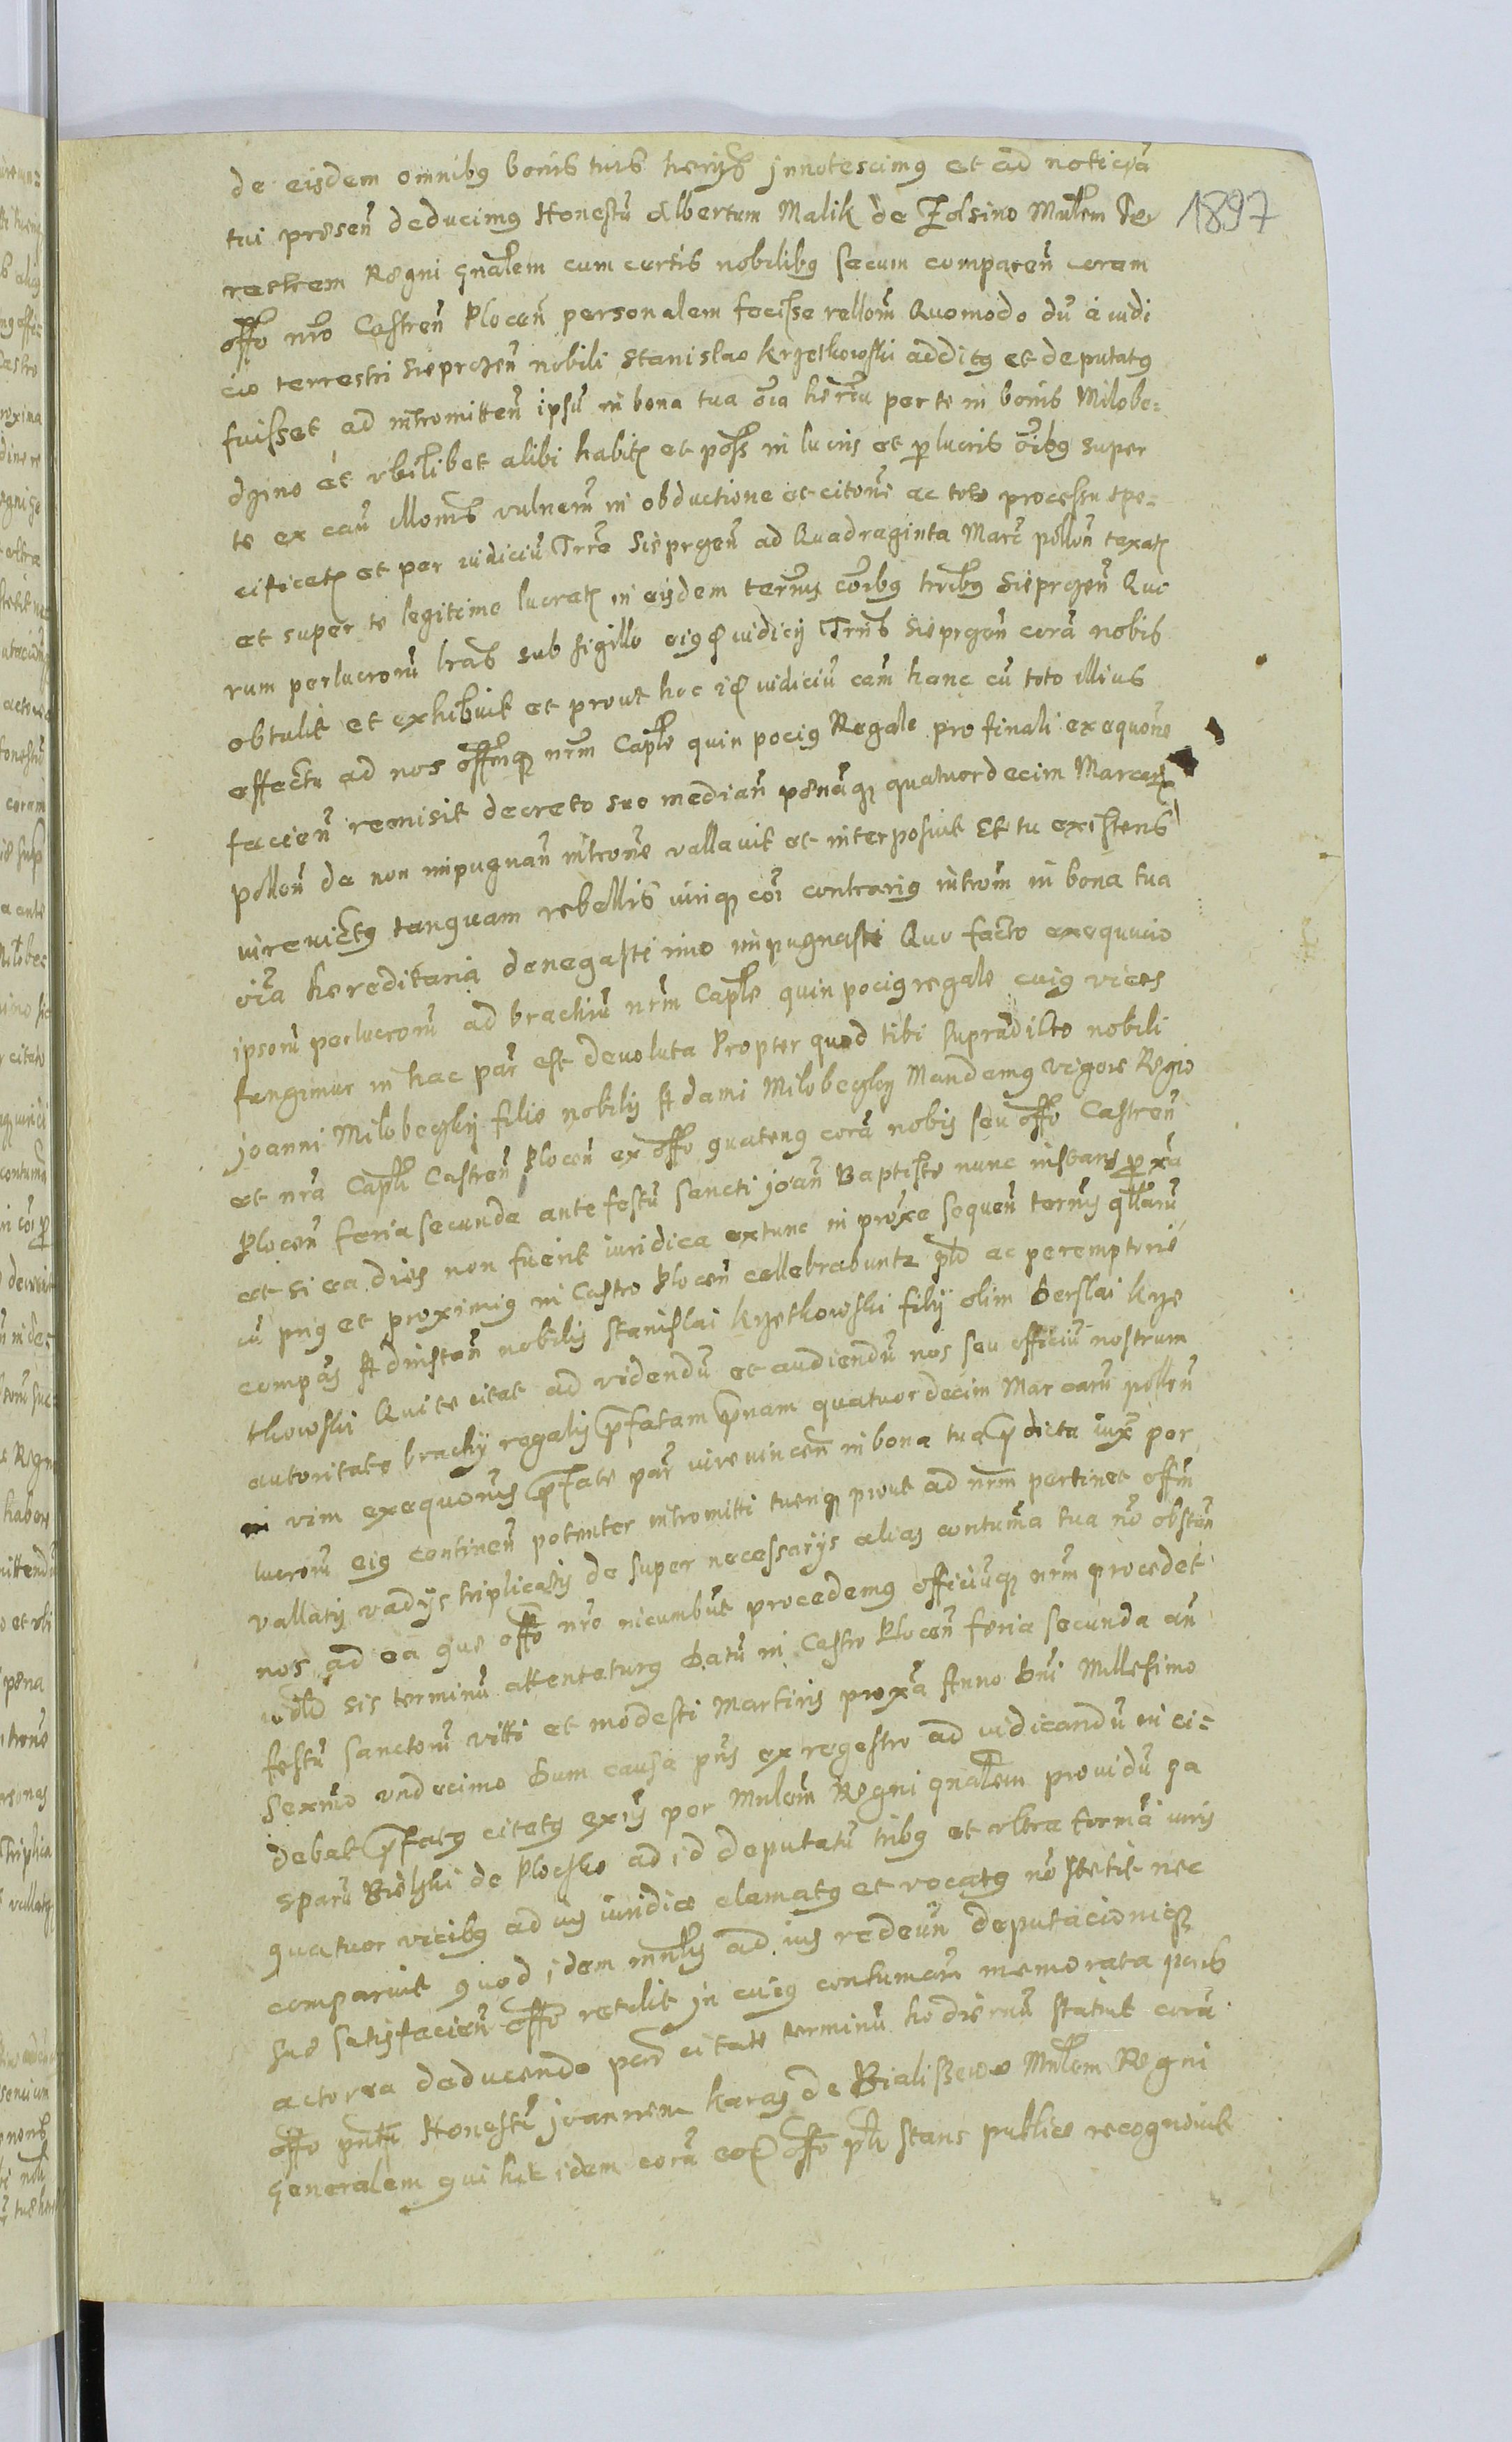 de eisdem omnibus bonis tuis heriis Innotescimus et ad noticiã
tui presen̄ deducimus Honestũ Albertum Malik de Zolsino Mnlem Ter
restrem Regni gnãlem cum certis nobilibus secum comparen̄ coram
offo nr̃o Castren̄ Plocen̄ personalem fecisse rellom̃ Quomodo dũ a iudi
cio terrestri Sieprczen̄ nobili Stanislao Krzetkowski additus et deputatus
fuisset ad intromitten̄ ipsũ in bona tua oĩa her̃ria per te in bonis Milobe=
dzino et vbilibet alibi habita et poss̃ in lucris et perlucris oĩbus super
te ex cau illoĩnis vulnerũ in obductione et citoñi ac toto processu spe=
cificatis et per iudiciũ Trr̃e Sieprczen̄ ad Quadraginta Marc̃ pollon̄ taxatis
et super te legitime lucratis in eisdem terminis coĩbus tr̃ibus Sieprczen̄ Quo
rum perlucrorũ lr̃as sub sigillo eiusdem iudicij Trris Sieprczen̄ corã nobis
obtulit et exhibuit et prout hoc idem iudiciũ cam̃ hanc cũ toto illius
effectu ad nos offmq nr̃m Caple quin pocius Regale pro finali exequone
facien̄ remisit decreto suo median̄ penãq quatuordecim Marcarum
pollon̄ de non impugnan̄ introne vallauit et interposuit Et tu existens
iurevictus tanquam rebellis iuriq coĩ contrarius introm̃ in bona tua
oĩa hereditaria denegasti imo impugnasti Quo facto exequucio
ipsorũ perlucrorũ ad brachiũ nr̃m Caple quin pocius regale cuius vices
fungimur in hac par est deuoluta Propter quod tibi supradicto nobili
Joanni Milobeczky filio nobilis Adami Milobeczky Mandamus vigore Regio
et nr̃a Capli Castren̄ Plocen̄ ex offo quatenus corã nobis seu offo Castren̄
Plocen̄ feria secunda ante festũ sancti Joan̄ Baptiste nunc instans prox̃a
et si ea dies non fuerit iuridica extunc in prox̃e sequen̄ terminis qllarũ
cũ pñs et proximius in Castro Plocen̄ cellebrabuntur plr ac peremptorie
compãs Ad instan̄ nobilis Stanislai Krzetkowski filij olim Berslai Krze
tkowski Qui te citat ad videndũ et audiendũ nos seu officiũ nostrum
autoritate brachij regalis prefatam penam quatuordecim Marcarũ pollon̄
in vim exequonis prefate par iurevincen̄ in bona tua predicta iux̃ per
lucrorũ eius continen̄ potenter intromitti tuenq prout ad nr̃m pertinet offm
vallatis vadijs triplicatis de super necessarijs alias contuma tua no obstan̄
nos ad ea que offo nr̃o incumbũt procedemus officiũq nr̃m procedet
sis terminũ attentaturus Datũ in Castro Plocen̄ feria secunda an
festũ sanctorũ Vitti et modesti Martiris prox̃a Anno Dni Millesimo
Sexmo vndecimo Dum causa pñs ex regestro ad iudicandũ inci=
debat prefatus citatus exijs per Mnlem̃ Regni gnãlem prouidũ Ga
sparũ Bielski de Plocsko ad id deputatũ tribus et vltra formã iuris
quatuor vicibus ad ius iuridice clamatus et vocatus nõ stetit nec
comparuit quod idem mnl̃is ad ius redeũn deputacioniq
sue satisfacien̄ offo retulit In cuius contumam̃ memorata pars
actorea deducendo par citate terminũ hodiernũ statuit corã
offo pñti Honestũ Joannem Karas de Bialissewo Mnlem Regni
generalem qui hic idem corã eodem offo plr stans publice recognouit
1897